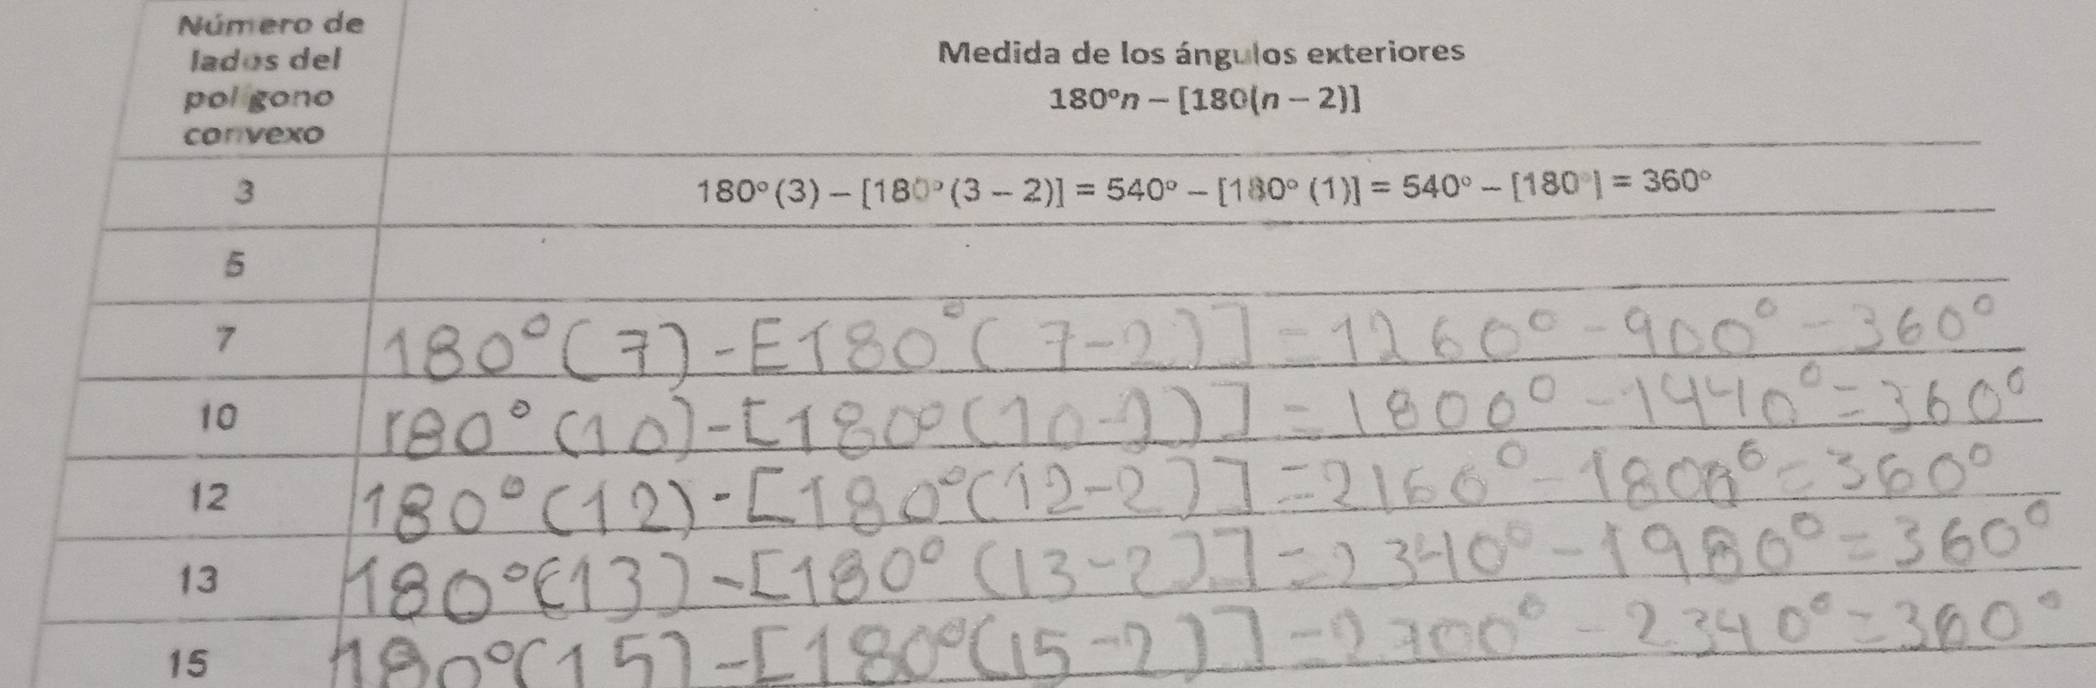 Número de
lados del
polígono
convexo
Medida de los ángulos exteriores
180°n − [180(n − 2)]
3 180°(3) − [180°(3 − 2)] = 540° − [180°(1)] = 540° − [180°] = 360°
5
7 180°(7) - [180°(7-2)] = 1260° - 900° - 360°
10 180°(10) - [180°(10-2)] = 1800° - 1440° = 360°
12 180°(12) - [180°(12-2)] = 2160° - 1800° = 360°
13 180°(13) - [180°(13-2)] = 2340° - 1980° = 360°
15 180°(15) - [180°(15-2)] = 2700° - 2340° = 360°